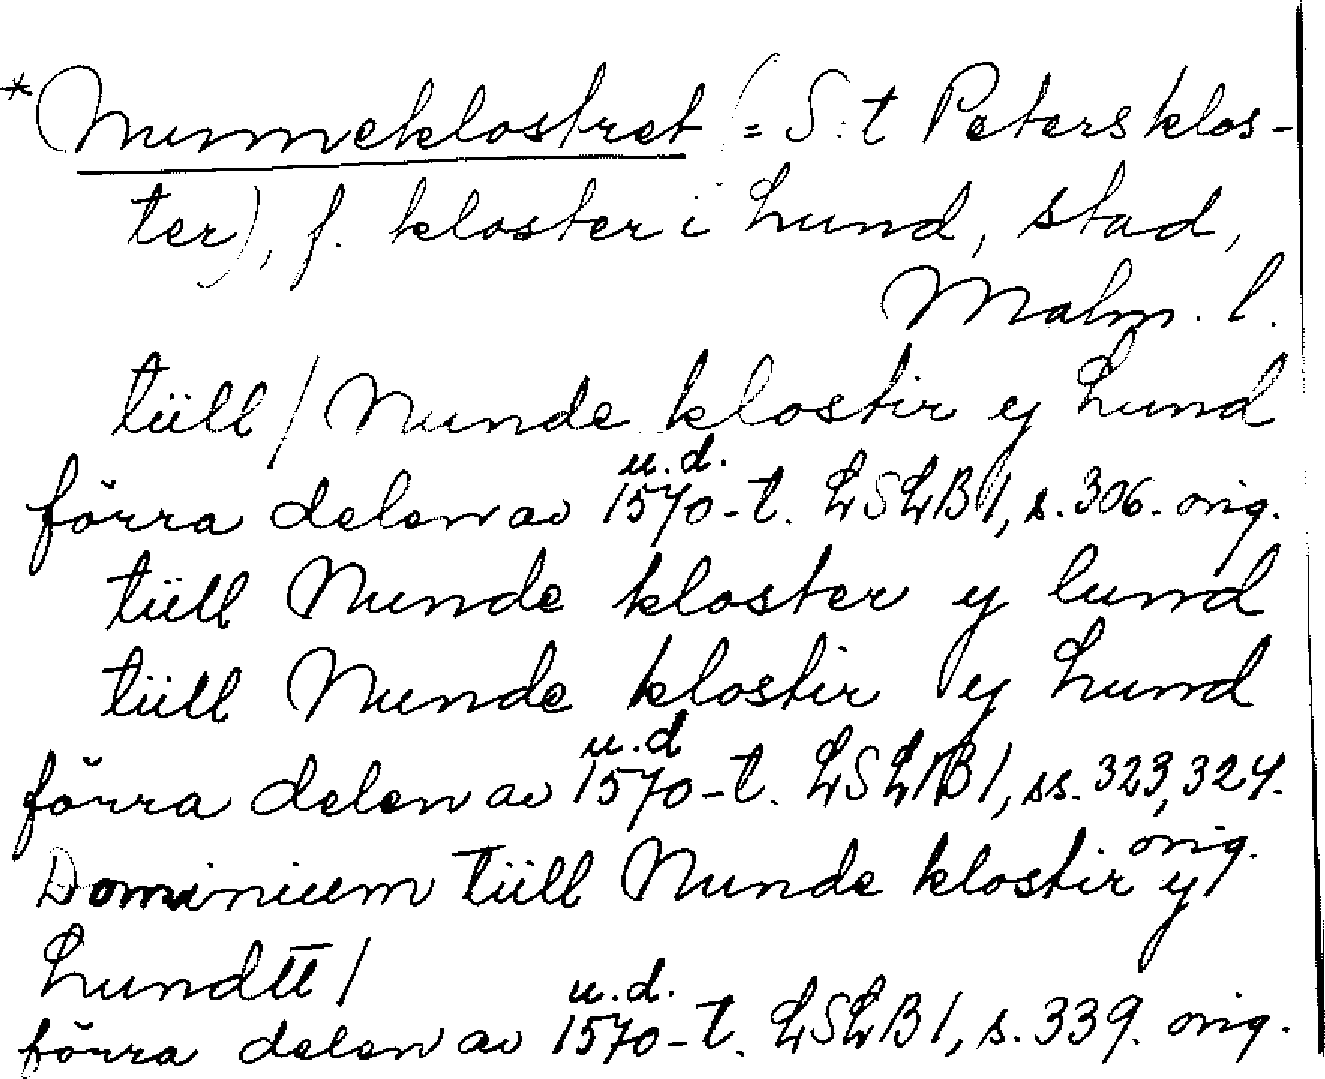 *Nunneklostret (= S:t Petersklos-
ter), f. kloster i Lund, stad,
Malm. l.
tüll / Nunde klostir y Lund
u.d.
förra delen av 1570-t. LSLB 1, s. 306. orig.
tüll Nunde kloster y lund
tüll Nunde klostir y Lund
u.d
förra delen av 1570-t. LSLB 1, ss. 323, 324.
orig.
Dominium tüll Nunde klostir y
Lundtt /
u.d.
förra delen av 1570-t. LSLB 1, s. 339. orig.